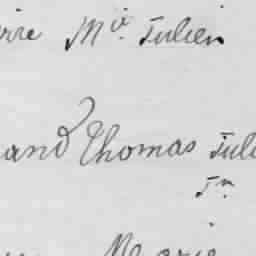 rre Mie Julien
and Thomas Juli
Jn
Marie